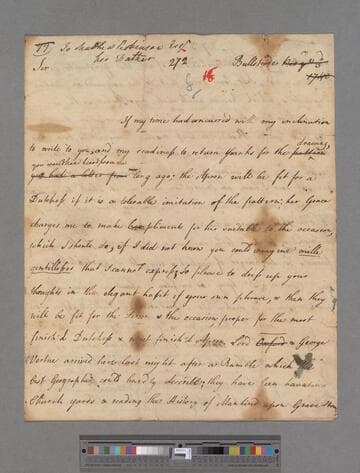 To Matthew Robinson Esqr
her Father 272
Sir Bullstrode
1740
16
If my time had concurred with my inclination
drawing,
to write to you, and my readiness to return thanks for the
you would have heard from me
you had a letter from long ago; the Apron will be fit for a
Dutchess if it is a tolerable imitation of the pattern; her Grace
charges me to make Compliments for her suitable to the occasion,
which I should do, if I did not know you could imagine mille
gentillesses that I cannot express, so please to dress up your
thoughts in the elegant habit of your own phrase, & then they
will be fit for the Person & the occasion proper for the most
finish'd Dutchess & most finish'd Apron Lord Oxford & George
Vertue arrived here last night after a Ramble which the
best Geographer could hardly describe; they have been haunting
Church yards & reading the History of Mankind upon Grave Stones